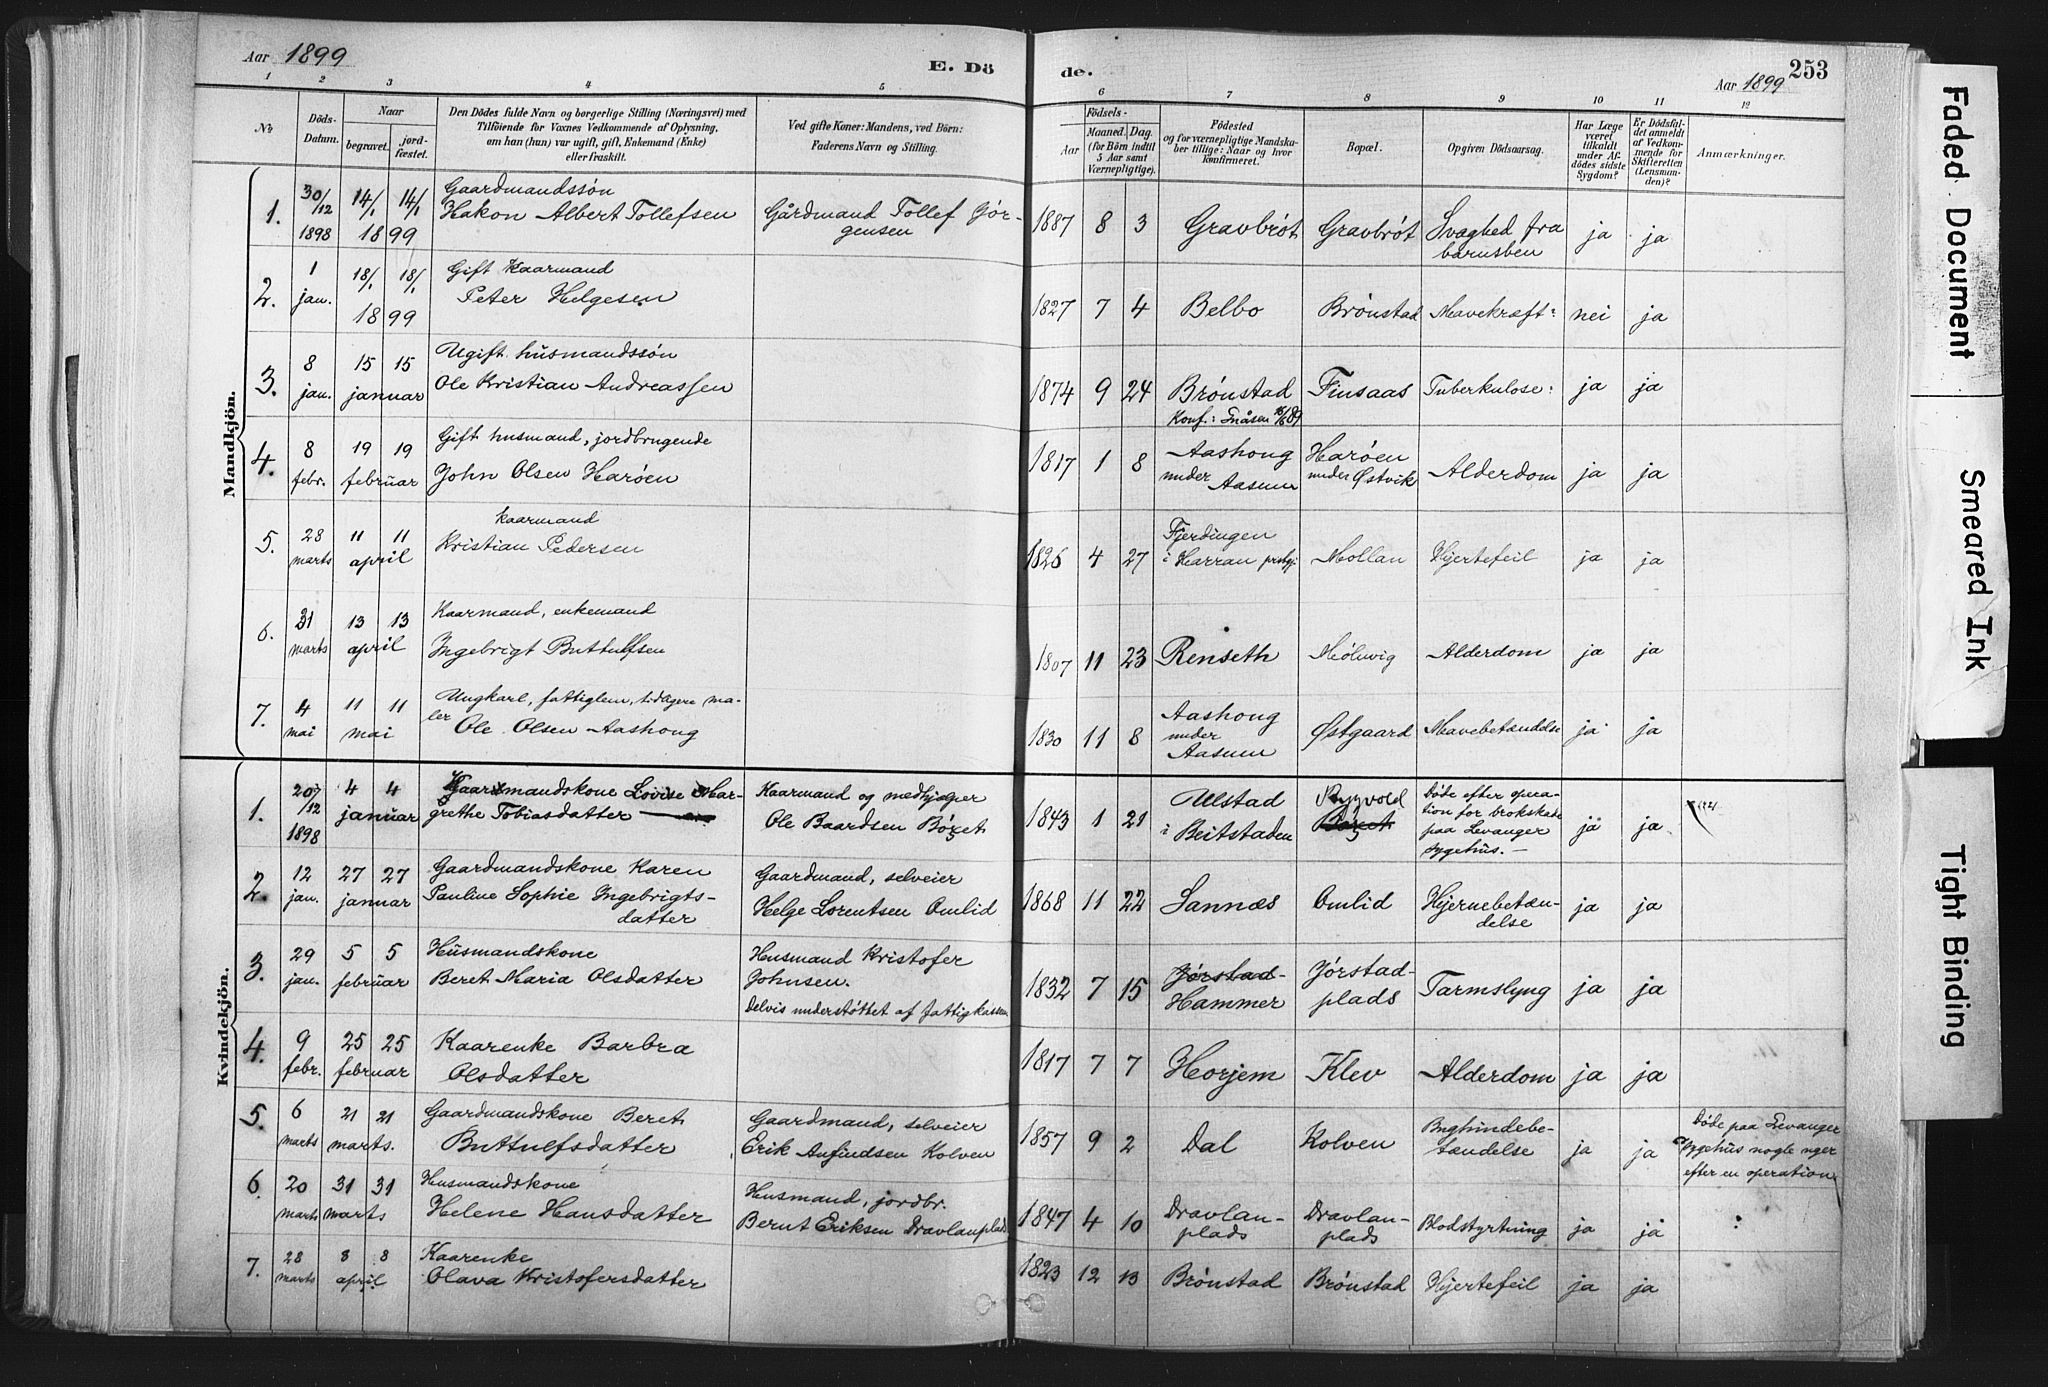 Aar 1899
E. Dö
de.
Aar 1899
253
1 2 3 4 5 6 7 8 9 10 11 12
No
Döds-
Datum.
Naar
begravet.
jord-
fæstet.
Den Dödes fulde Navn og borgerlige Stilling (Næringsvei) med
Tilföiende for Voxnes Vedkommende af Oplysning,
om han (hun) var ugift, gift, Enkemand (Enke)
eller fraskilt.
Ved gifte Koner: Mandens, ved Börn:
Faderens Navn og Stilling.
Födsels-
Aar
Maaned. Dag.
(for Börn indtil
5 Aar samt
Værnepligtige).
Födested
og for værnepligtige Mandska-
ber tillige: Naar og hvor
konfirmeret.
Bopæl.
Opgiven Dödsaarsag.
Har Læge
været
tilkaldt
under Af-
dödes sidste
Sygdom?
Er Dödsfal-
det anmeldt
af Vedkom-
mende for
Skifteretten
(Lensman-
den)?
Anmærkninger.
Mandkjön.
1. 30/12 1898 14/1 14/1 1899
Gaardmandssön
Hakon Albert Tollefsen
Gårdmand Tollef Jör-
gensen
1887 8 3 Gravbröt Gravbröt Svaghed fra
barnsben ja ja
2. 1 jan. 18/1 18/1 1899
Gift kaarmand
Peter Helgesen
1827 7 4 Belbo Brönstad Mavekræft: nei ja
3. 8 jan. 15 15 januar
Ugift husmandssön
Ole Kristian Andreassen
1874 9 24 Brönstad Finsaas Tuberkulose: ja ja
Konf.: Snåsen 16/6 89
4. 8 febr. 19 19 februar
Gift husmand, jordbrugende
John Olsen Haröen
1817 1 8 Aashong
under Aasum
Haröen
under Østvik Alderdom ja ja
5. 28 marts 11 11 april
kaarmand
Kristian Pedersen
1826 4 27 Fjerdingen
i Harran prstgj: Mollan Hjertefeil ja ja
6. 31 marts 13 13 april
Kaarmand, enkemand
Ingebrigt Buttulfsen
1807 11 23 Renseth Mölnvig Alderdom ja ja
7. 4 mai 11 11 mai
Ungkarl, fattiglem, tidligere ma-
ler Ole Olsen Aashong
1830 11 8 Aashong
under
Aasum Østgaard Mavebetændelse ja ja
Kvindekjön.
1. 20/12 1898 4 4 januar
Kaarmandskone Lovise Mar-
grethe Tobiasdatter
Kaarmand og medhjælper
Ole Baardsen
1843 1 21 Ulstad
i Beitstaden
Døde efter opera-
tion for brokskade
paa Levanger
sygehus. ja ja
2. 12 jan. 27 27 januar
Gaardmandskone Karen
Pauline Sophie Ingebrigts-
datter
Gaardmand, selveier
Helge Lorentsen Omlid
1868 11 22 Sannæs Omlid Hjernebetæn-
delse ja ja
3. 29 jan. 5 5 februar
Husmandskone
Beret Maria Olsdatter
Husmand Kristofer
Johnsen.
delvis understöttet af fattigkassen
1832 7 15 Jörstad-
Hammer
Jörstad-
plads Tarmslyng ja ja
4. 9 febr. 25 25 februar
Kaarenke Barbra
Olsdatter
1817 7 7 Horjem Klev Alderdom ja ja
5. 6 marts 21 21 marts.
Gaardmandskone Beret
Buttulfsdatter
Gaardmand, selveier
Erik Anfindsen Kolven
1857 9 2 Dal Kolven Bughindebe-
tændelse ja ja
Døde paa Levanger
sygehus nogle uger
efter en operation
6. 20 marts 31 31 marts
Husmandskone
Helene Hansdatter
Husmand, jordbr.
Bernt Eriksen Dravlanplads
1847 4 10 Dravlan-
plads
Dravlan-
plads Blodstyrtning ja ja
7. 28 marts 8 8 april
Kaarenke
Olava Kristofersdatter
1823 12 13 Brönstad Brönstad Hjertefeil ja ja
Faded Document
Smeared Ink
Tight Binding